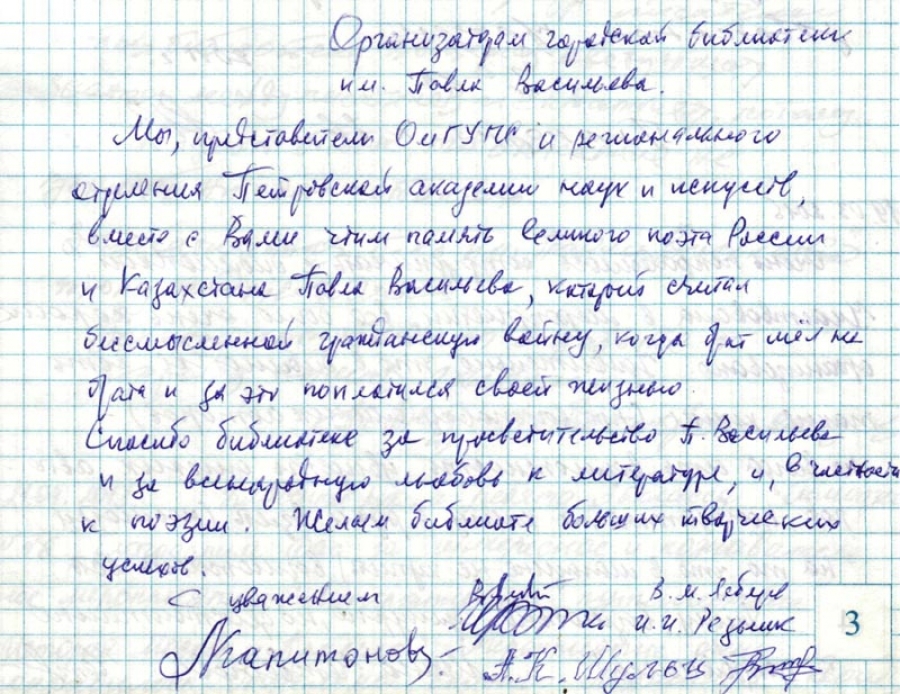 Организаторам городской библиотеки
им. Павла Васильева.
Мы, представители ОмГУПС и регионального
отделения Петровской академии наук и искусств,
вместе с Вами чтим память великого поэта России
и Казахстана Павла Васильева, который считал
бессмысленной гражданскую войну, когда брат шёл на
брата и за это поплатился своей жизнью.
Спасибо библиотеке за просветительство П. Васильева
и за всенародную любовь к литературе, и, в частности
к поэзии. Желаем библиоте больших творческих
успехов.
С уважением В. М.
И. И. Резник
Капитонов
А. К. Шульц
3